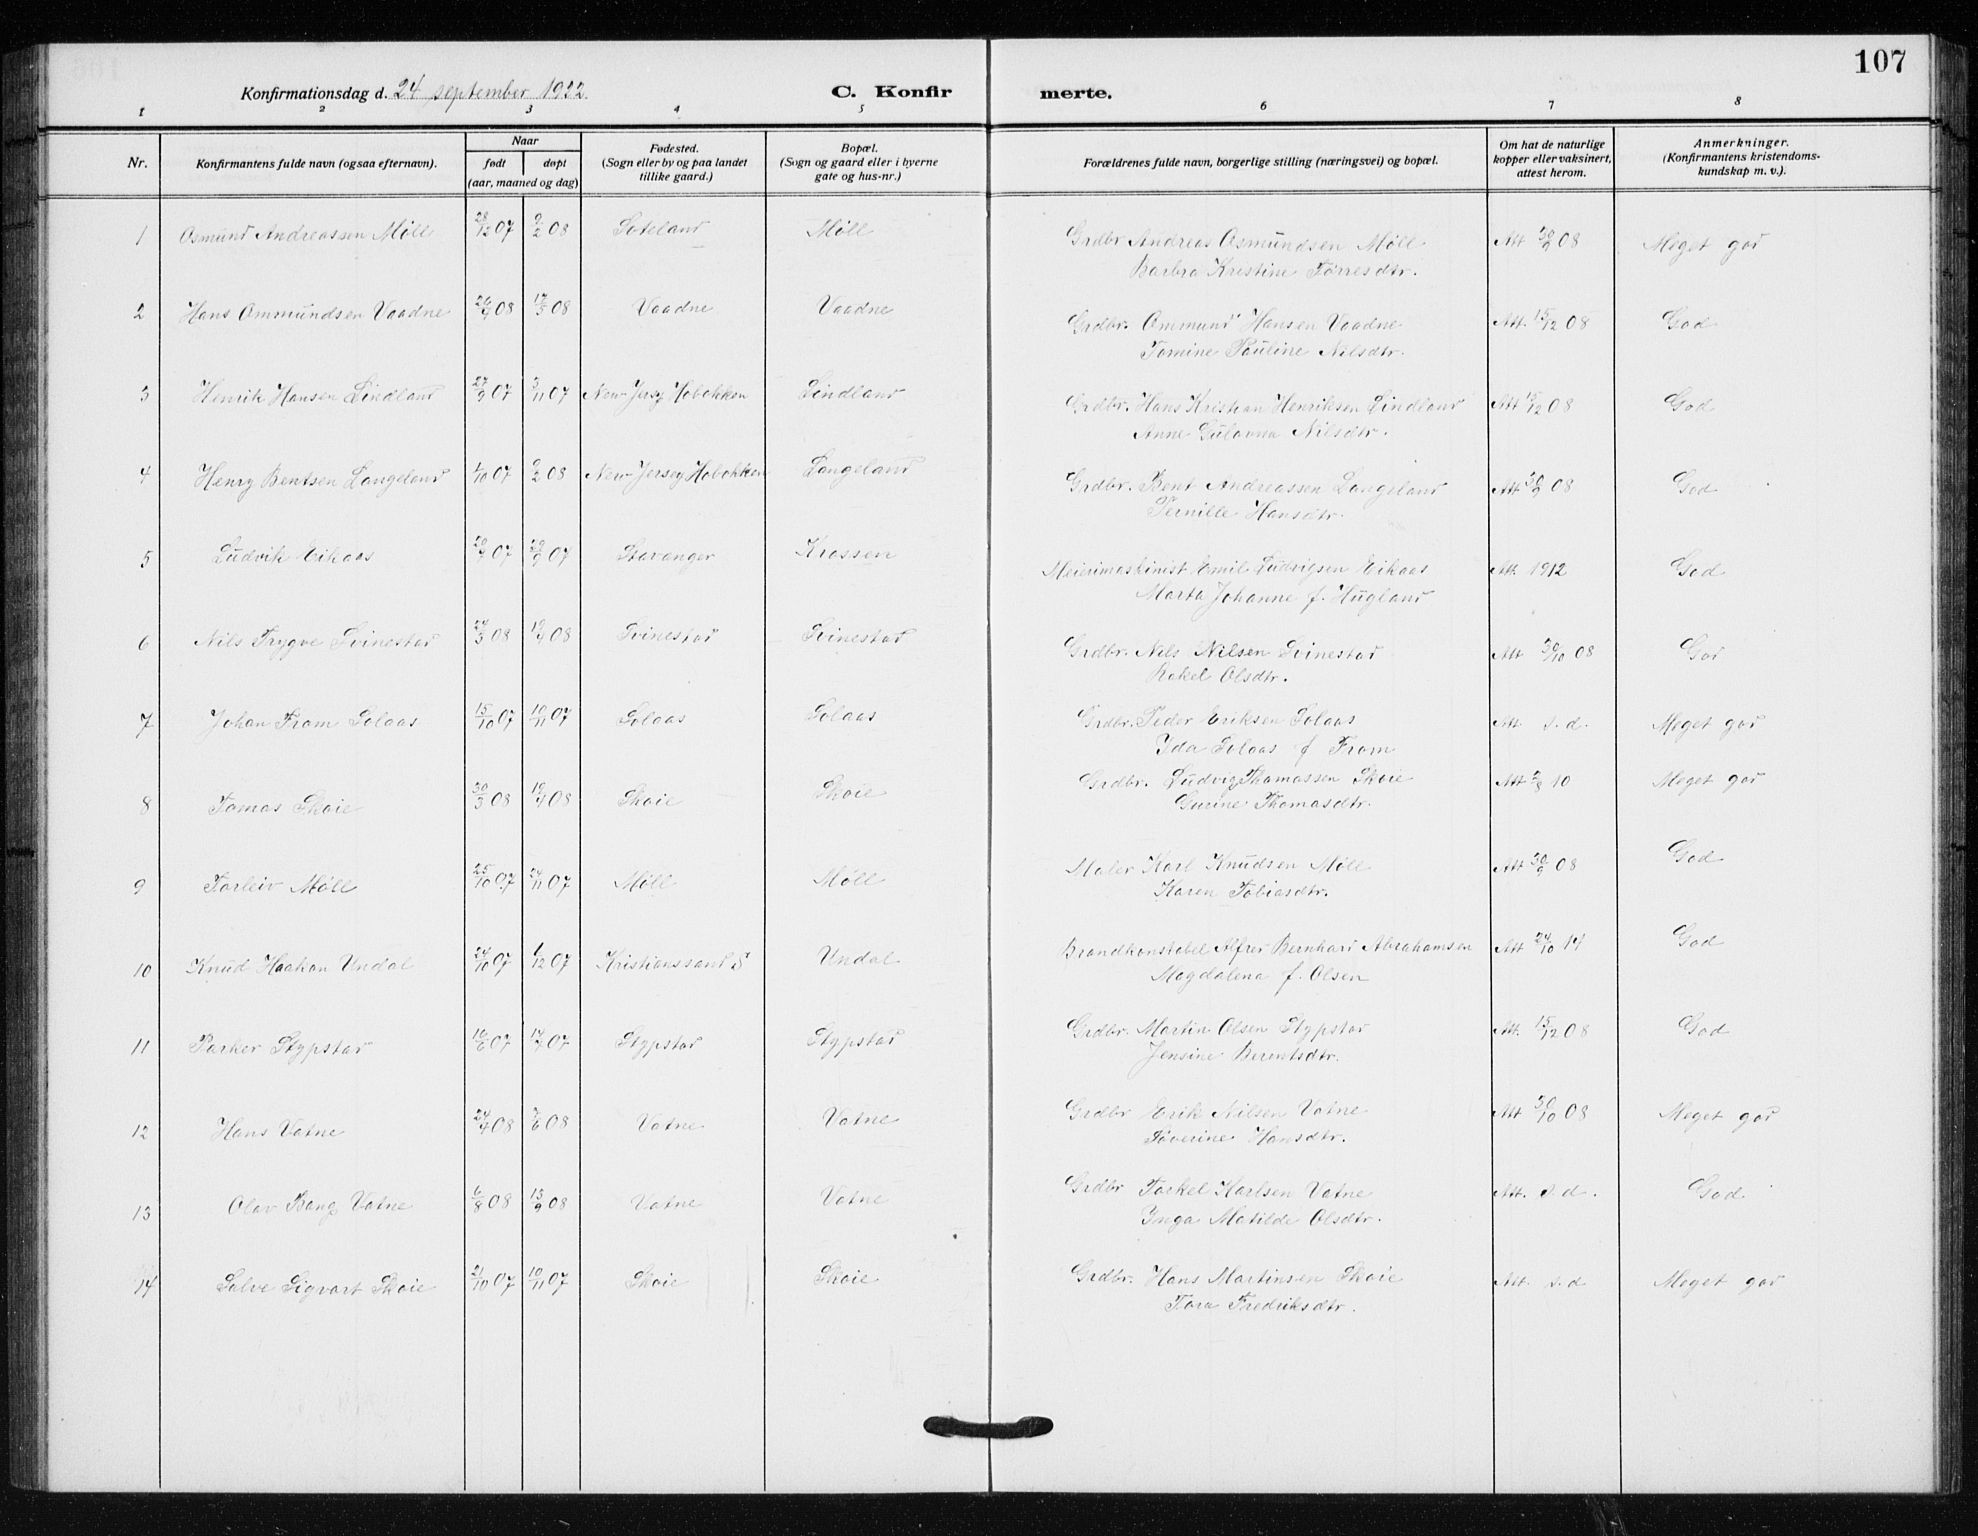 107
Konfirmationsdag d. 24 september 1922. C. Konfirmerte.
1 2 3 4 5 6 7 8
Nr. Konfirmantens fulde navn (ogsaa efternavn). Naar født døpt (aar, maaned og dag) Fødested. (Sogn eller by og paa landet tillike gaard.) Bopæl. (Sogn og gaard eller i byerne gate og hus-nr.) Forældrenes fulde navn, borgerlige stilling (næringsvei) og bopæl. Om hat de naturlige kopper eller vaksinert, attest herom. Anmerkninger. (Konfirmantens kristendomskundskap m. v.).
1 Osmund Andreassen Møll 28/12 07 9/2 08 Møll Grdbr Andreas Osmundsen Møll Att 30/9 08 Meget god
Barbra Kristine Tørresdtr.
2 Hans Ommundsen Vaadne 08 17/5 08 Vaadne Vaadne Grdbr. Ommund Hansen Vaadne Att. 15/12 08 God
Tomine Pauline Nilsdtr.
3 Henrik Hansen Lindland 27/9 07 3/11 07 New-Jersy Hobokken Lindland Grdbr. Hans Kristian Henriksen Lindland Att 15/12 08 God
Anne Gulovna Nilsdtr.
4 Henry Bentsen Langeland 07 9/2 08 New-Jersey Hobokken Langeland Grdbr. Bent Andreassen Langeland Att 30/9 08 God
Pernille Hansdtr.
5 Ludvik Eikaas 07 29/9 07 Stavanger Krossen Meierimaskinist Emil Ludvigsen Eikaas Att. 1912 God
Marta Johanne f. Hugland
6 Nils Trygve Svinestad 24/3 08 19/4 08 Svinestad Svinestad Grdbr. Nils Nilsen Svinestad Att 30/10 08 God
Rakel Olsdtr.
7 Johan From Solaas 15/10 07 10/11 07 Solaas Solaas Grdbr. Peder Eriksen Solaas Att. s.d. Meget god
Ida Solaas f From
8 Tomas Skoie 30/3 08 19/4 08 Skoie Skoie Grdbr. Ludvig Thomassen Skoie Att 2/8 10 Meget god
Gurine Thomasdtr.
9 Torleiv Møll 25/10 07 24/11 07 Møll Møll Maler Karl Knudsen Møll Att 30/9 08 God
Karen Tobiasdtr.
10 Knud Haakon Undal 24/10 07 1/12 07 Kristianssand S Undal Brandkonstabel Alfred Bernhard Abrahamsen Att 24/10 14 God
Magdalena f. Olsen
11 Parker Stypstad 16/6 07 14/7 07 Stypstad Stypstad Grdbr. Martin Olsen Stypstad Att. 15/12 08 God
Jensine Berentsdtr.
12 Hans Vatne 24/4 08 7/6 08 Vatne Vatne Grdbr Erik Nilsen Vatne Att 30/10 08 Meget god
Søverine Hansdtr.
13 Olav Bang Vatne 6/8 08 13/9 08 Vatne Vatne Grdbr Torkel Karlsen Vatne Att. s.d. God
Inga Matilde Olsdtr.
14 Salve Sigvart Skoie 21/10 07 10/11 07 Skoie Skoie Grdbr. Hans Martinsen Skoie Att. s.d Meget god
Tora Fredriksdtr.